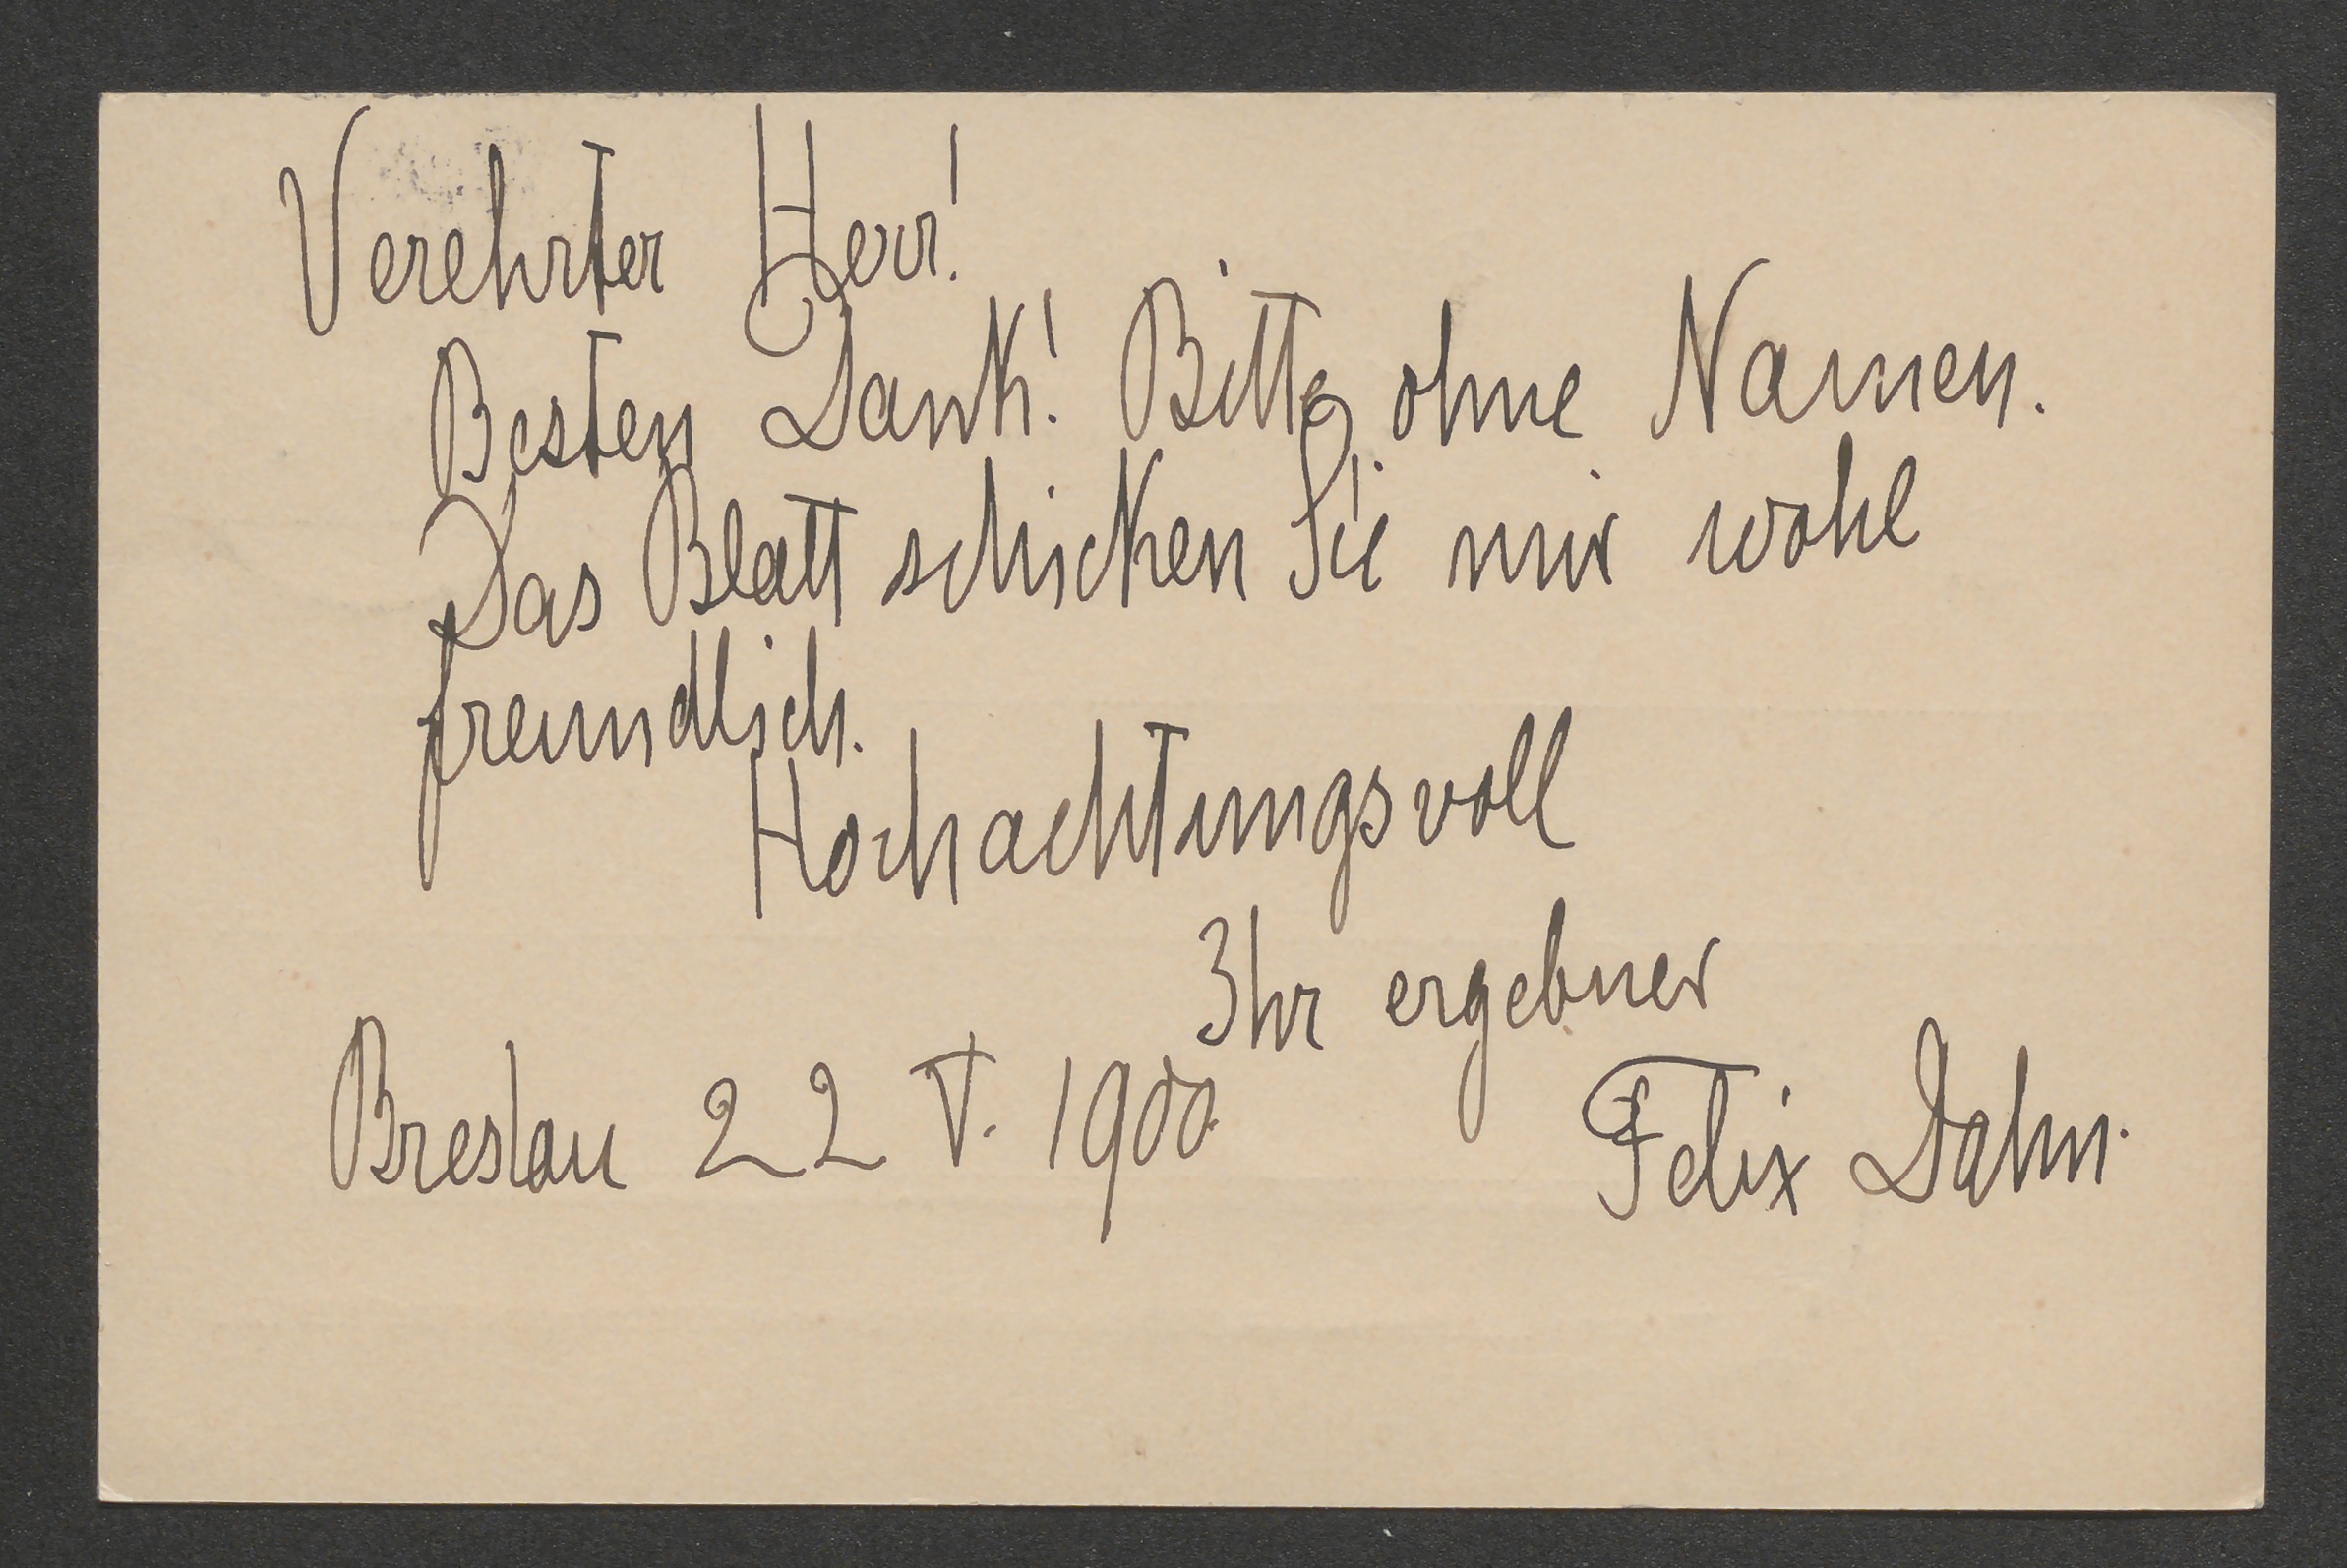 Verehrter Herr!
Besten Dank! Bitte, ohne Namen.
Das Blatt schicken Sie mir wohl
freundlich.
Hochachtungsvoll
Ihr ergebner
Breslau 22 V. 1900. Felix Dahn.